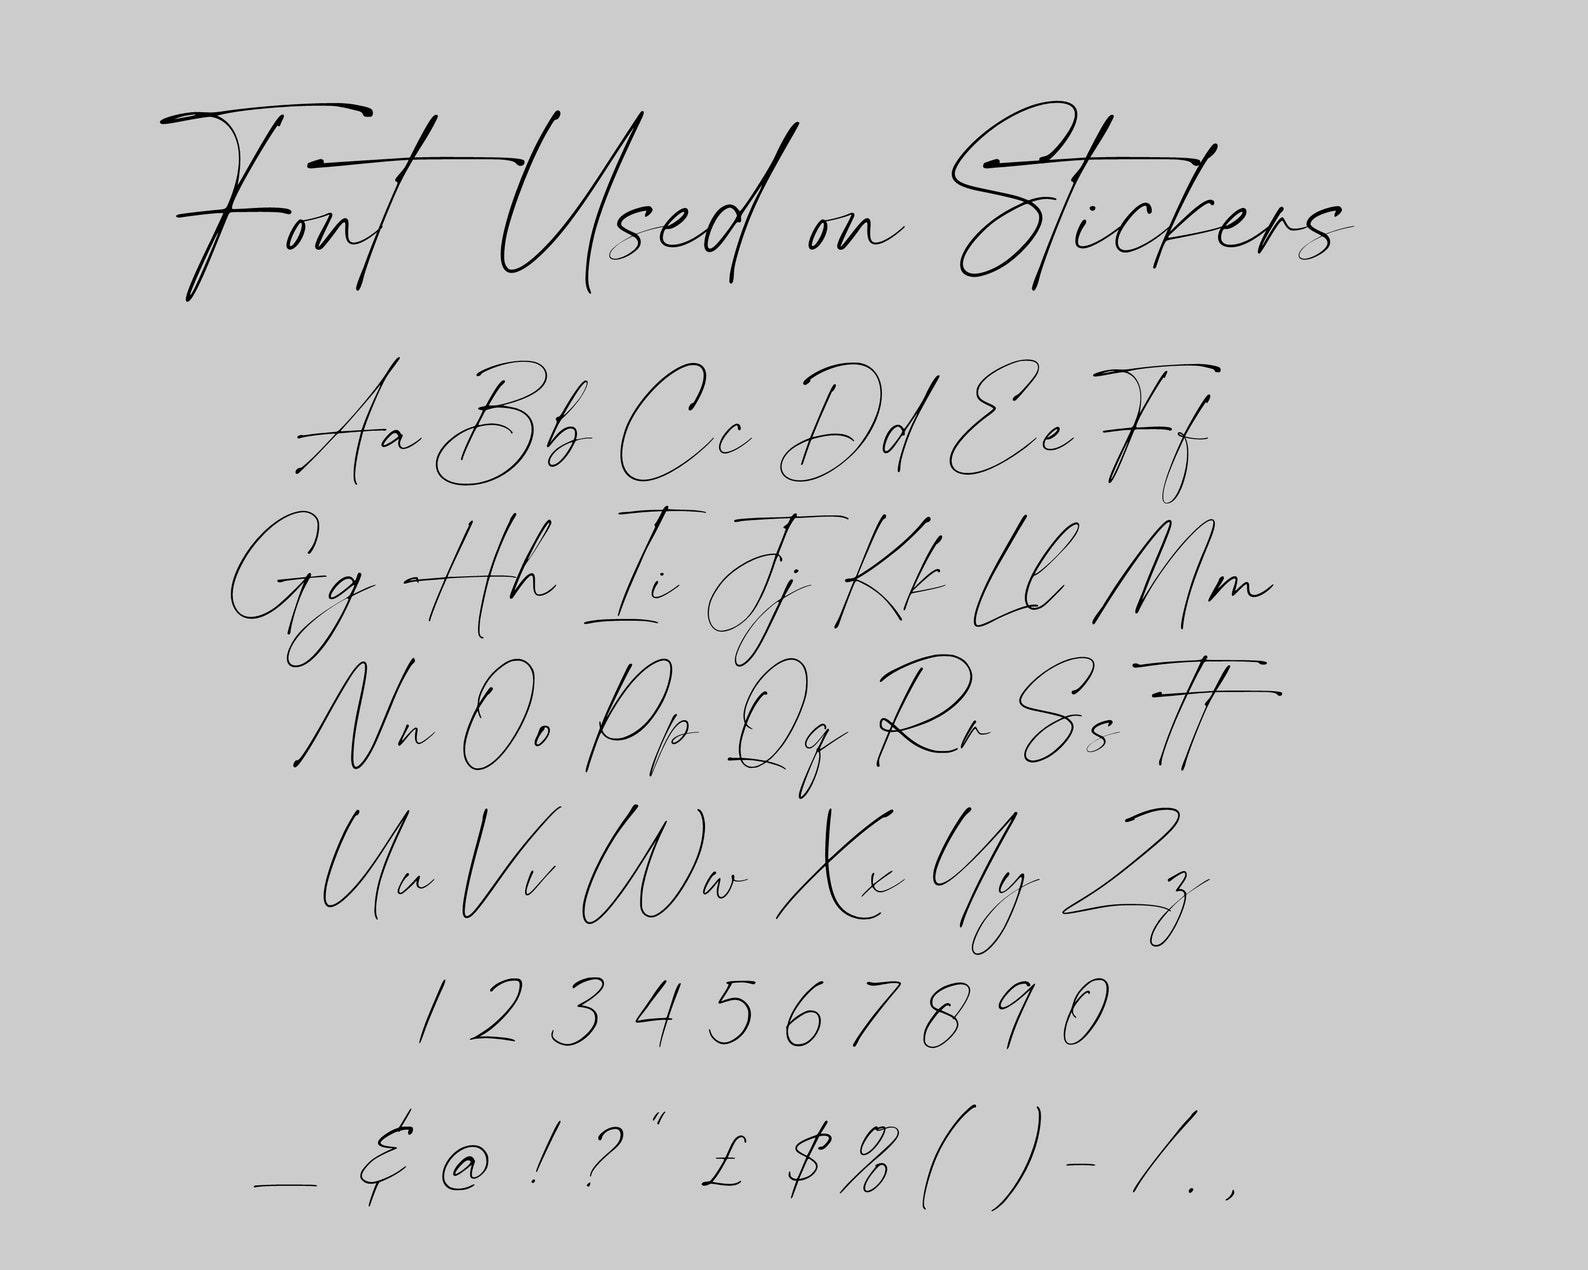 Font Used on Stickers
Aa Bb Cc Dd Ee Ff
Gg Hh Ii Jj Kk Ll Mm
Nn Oo Pp Qq Rr Ss Tt
Uu Vv Ww Xx Yy Zz
1 2 3 4 5 6 7 8 9 0
_ & @ ! ? " £ $ % ( ) - / . ,